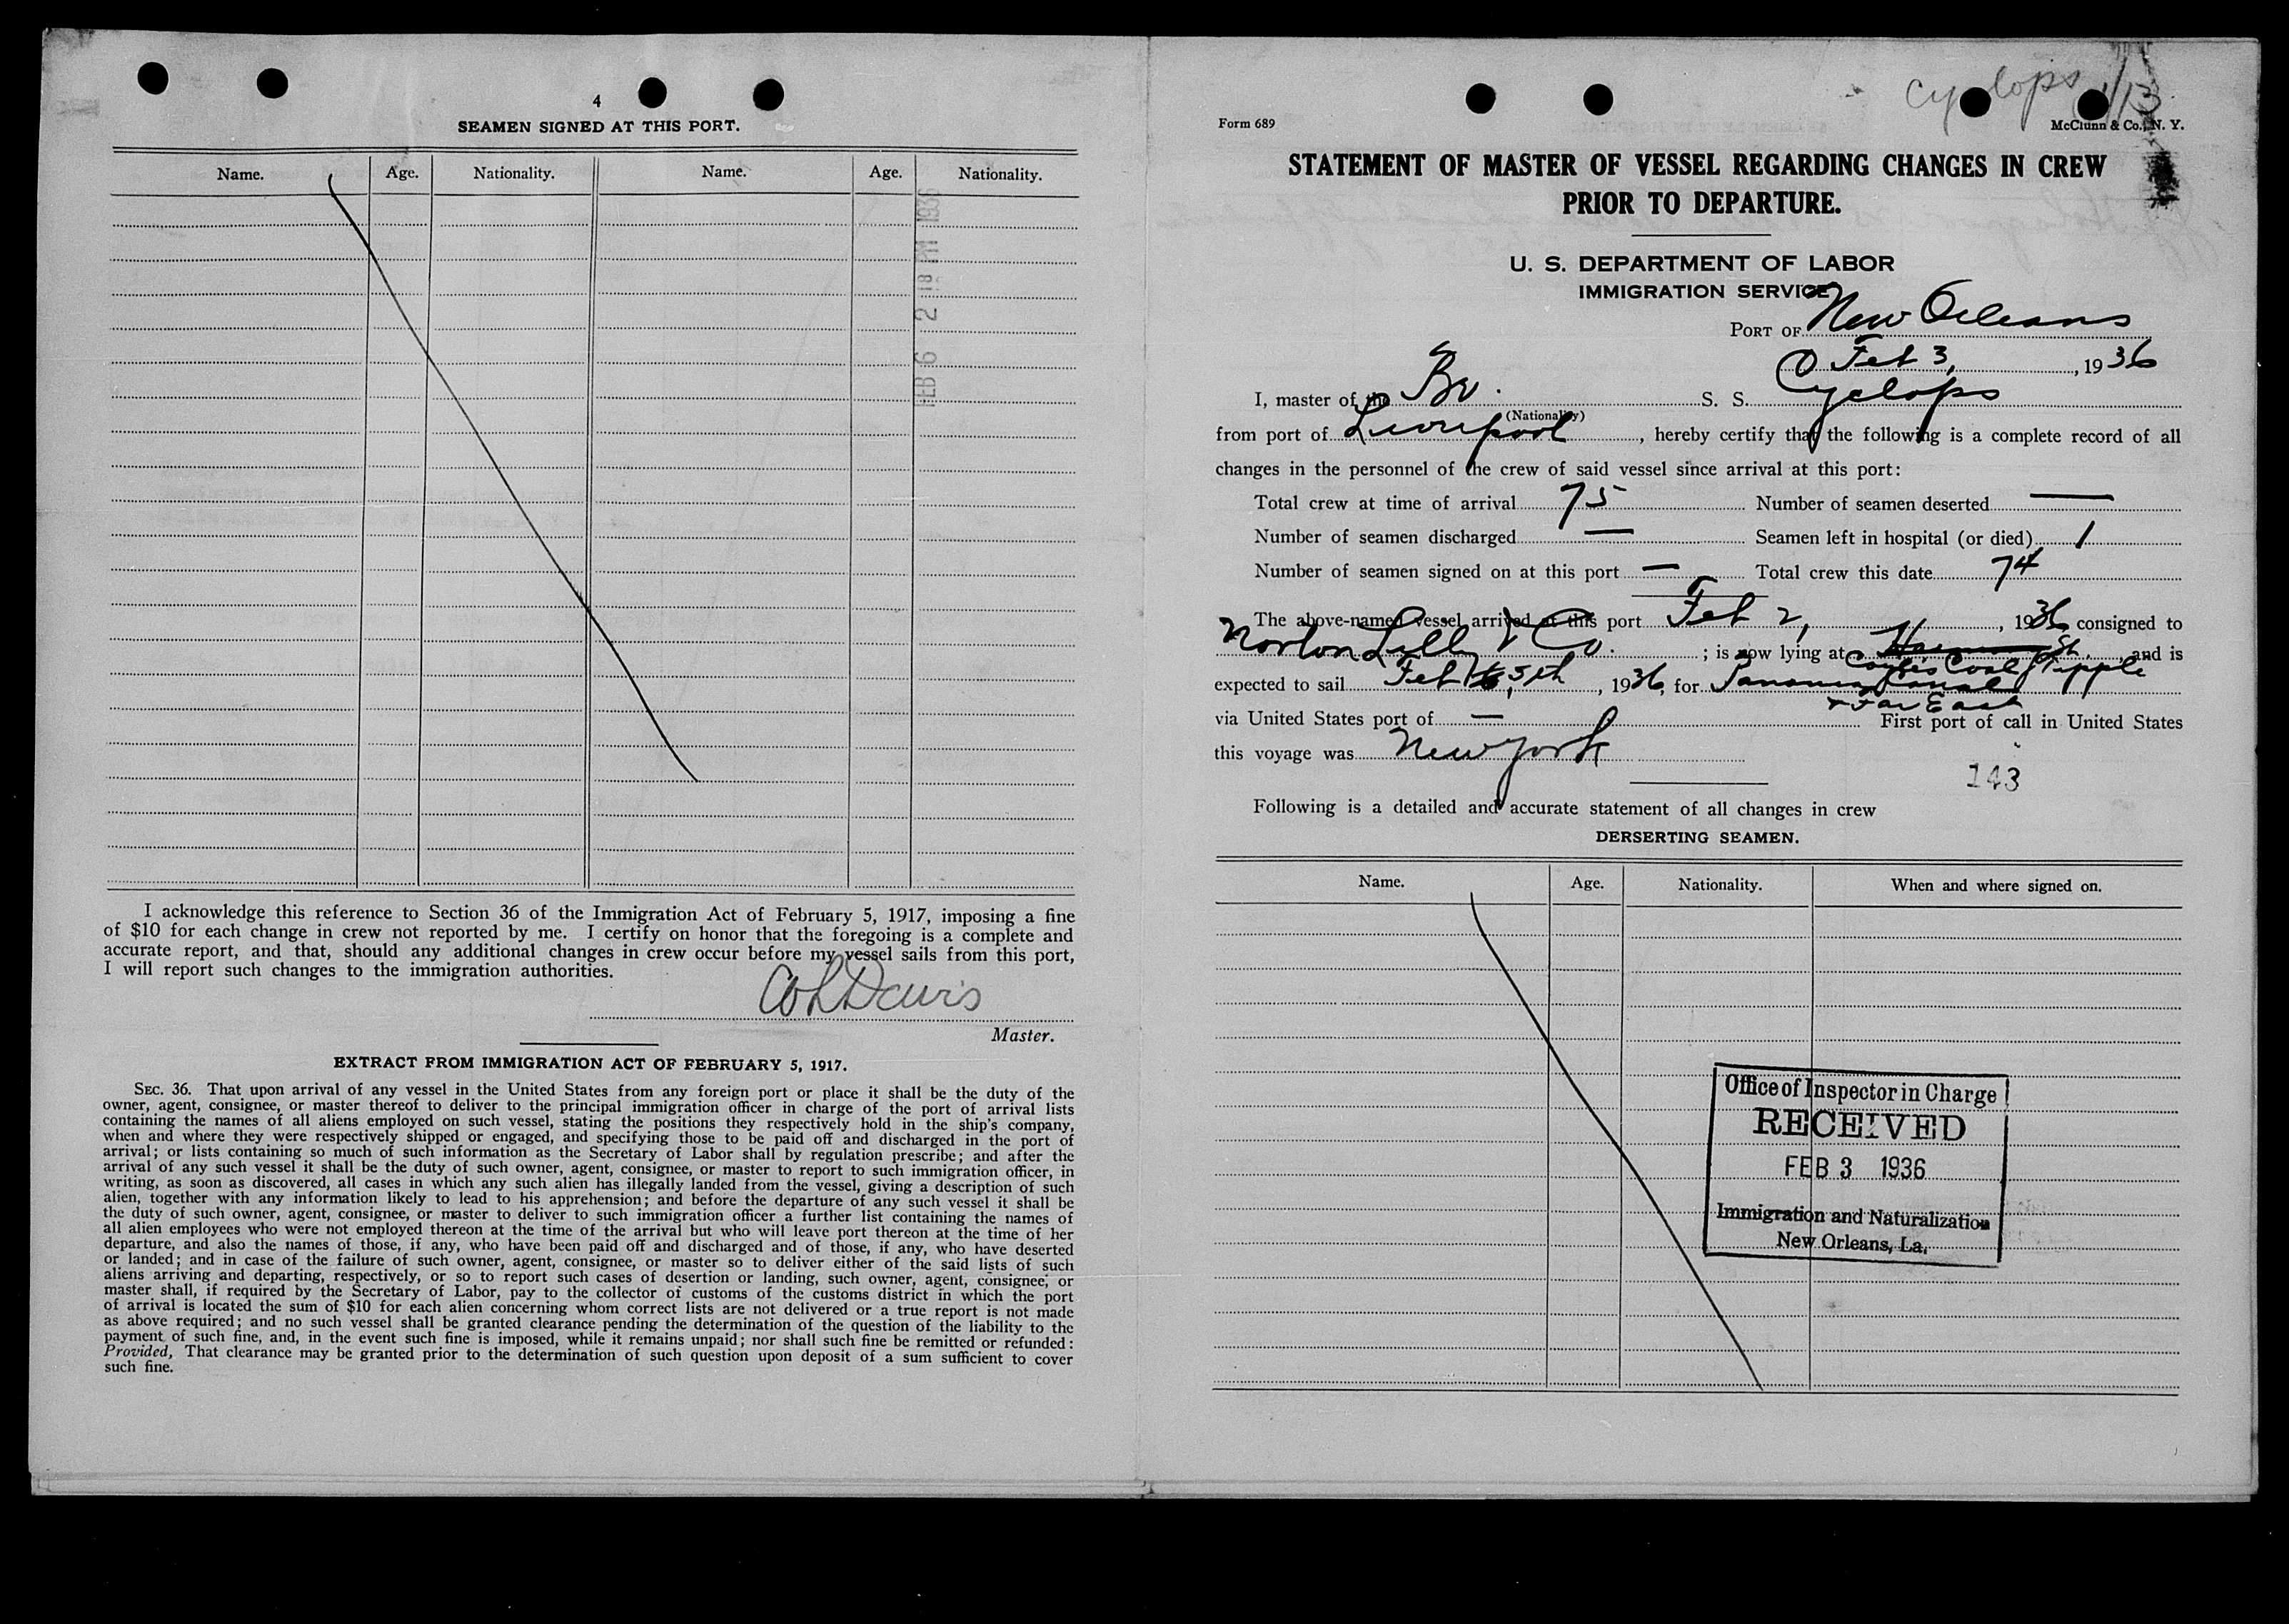 4
SEAMEN SIGNED AT THIS PORT.
Name. Age. Nationality. Name. Age. Nationality.
FEB 6 2 18 PM 1936
I acknowledge this reference to Section 36 of the Immigration Act of February 5, 1917, imposing a fine
of $10 for each change in crew not reported by me. I certify on honor that the foregoing is a complete and
accurate report, and that, should any additional changes in crew occur before my vessel sails from this port,
I will report such changes to the immigration authorities.
Davis
Master.
EXTRACT FROM IMMIGRATION ACT OF FEBRUARY 5, 1917.
SEC. 36. That upon arrival of any vessel in the United States from any foreign port or place it shall be the duty of the
owner, agent, consignee, or master thereof to deliver to the principal immigration officer in charge of the port of arrival lists
containing the names of all aliens employed on such vessel, stating the positions they respectively hold in the ship's company,
when and where they were respectively shipped or engaged, and specifying those to be paid off and discharged in the port of
arrival; or lists containing so much of such information as the Secretary of Labor shall by regulation prescribe; and after the
arrival of any such vessel it shall be the duty of such owner, agent, consignee, or master to report to such immigration officer, in
writing, as soon as discovered, all cases in which any such alien has illegally landed from the vessel, giving a description of such
alien, together with any information likely to lead to his apprehension; and before the departure of any such vessel it shall be
the duty of such owner, agent, consignee, or master to deliver to such immigration officer a further list containing the names of
all alien employees who were not employed thereon at the time of the arrival but who will leave port thereon at the time of her
departure, and also the names of those, if any, who have been paid off and discharged and of those, if any, who have deserted
or landed; and in case of the failure of such owner, agent, consignee, or master so to deliver either of the said lists of such
aliens arriving and departing, respectively, or so to report such cases of desertion or landing, such owner, agent, consignee, or
master shall, if required by the Secretary of Labor, pay to the collector of customs of the customs district in which the port
of arrival is located the sum of $10 for each alien concerning whom correct lists are not delivered or a true report is not made
as above required; and no such vessel shall be granted clearance pending the determination of the question of the liability to the
payment of such fine, and, in the event such fine is imposed, while it remains unpaid; nor shall such fine be remitted or refunded:
Provided, That clearance may be granted prior to the determination of such question upon deposit of a sum sufficient to cover
such fine.
Cyclops
Form 689 McClunn & Co., N. Y.
STATEMENT OF MASTER OF VESSEL REGARDING CHANGES IN CREW
PRIOR TO DEPARTURE.
U. S. DEPARTMENT OF LABOR
IMMIGRATION SERVICE
PORT OF New Orleans
Feb 3, , 1936
I, master of the Br. S. S. Cyclops
(Nationality)
from port of Liverpool , hereby certify that the following is a complete record of all
changes in the personnel of the crew of said vessel since arrival at this port:
Total crew at time of arrival 75 Number of seamen deserted —
Number of seamen discharged — Seamen left in hospital (or died) 1
Number of seamen signed on at this port — Total crew this date 74
The above-named vessel arrived at this port Feb 2, , 1936, consigned to
Norton Lilly & Co. ; is now lying at St. , and is
Coyle's Coal Tipple
expected to sail Feb 5th , 1936, for Panama Canal
& Far East
via United States port of — First port of call in United States
this voyage was New York
143
Following is a detailed and accurate statement of all changes in crew
DERSERTING SEAMEN.
Name. Age. Nationality. When and where signed on.
Office of Inspector in Charge
RECEIVED
FEB 3 1936
Immigration and Naturalization
New Orleans, La.